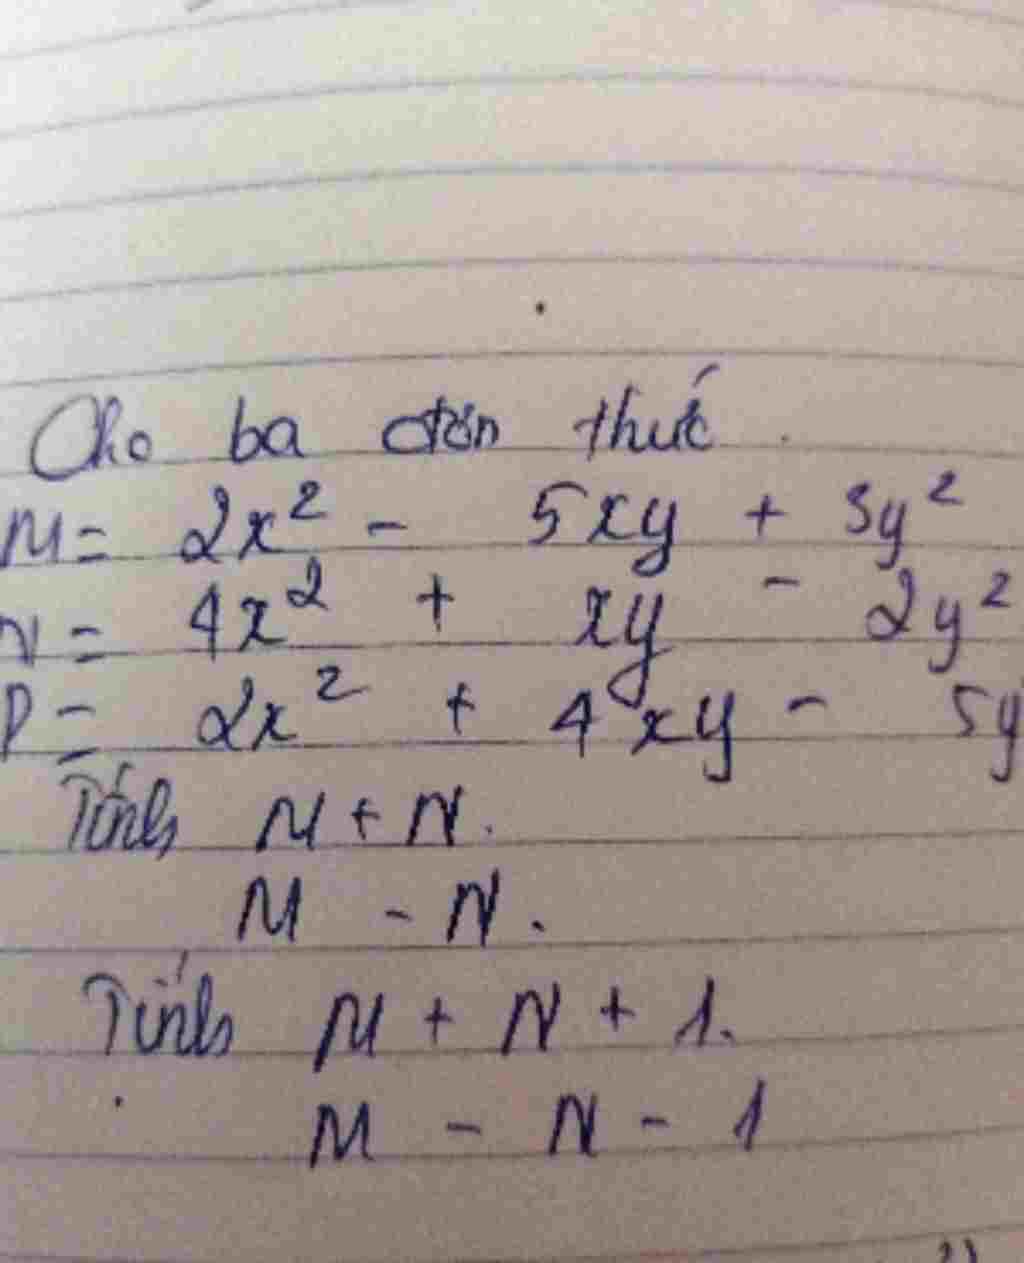 Cho ba đơn thức
M = 2x² - 5xy + 3y²
N = 4x² + xy - 2y²
P = 2x² + 4xy - 5y
Tính M + N.
M - N.
Tính M + N + 1.
M - N - 1